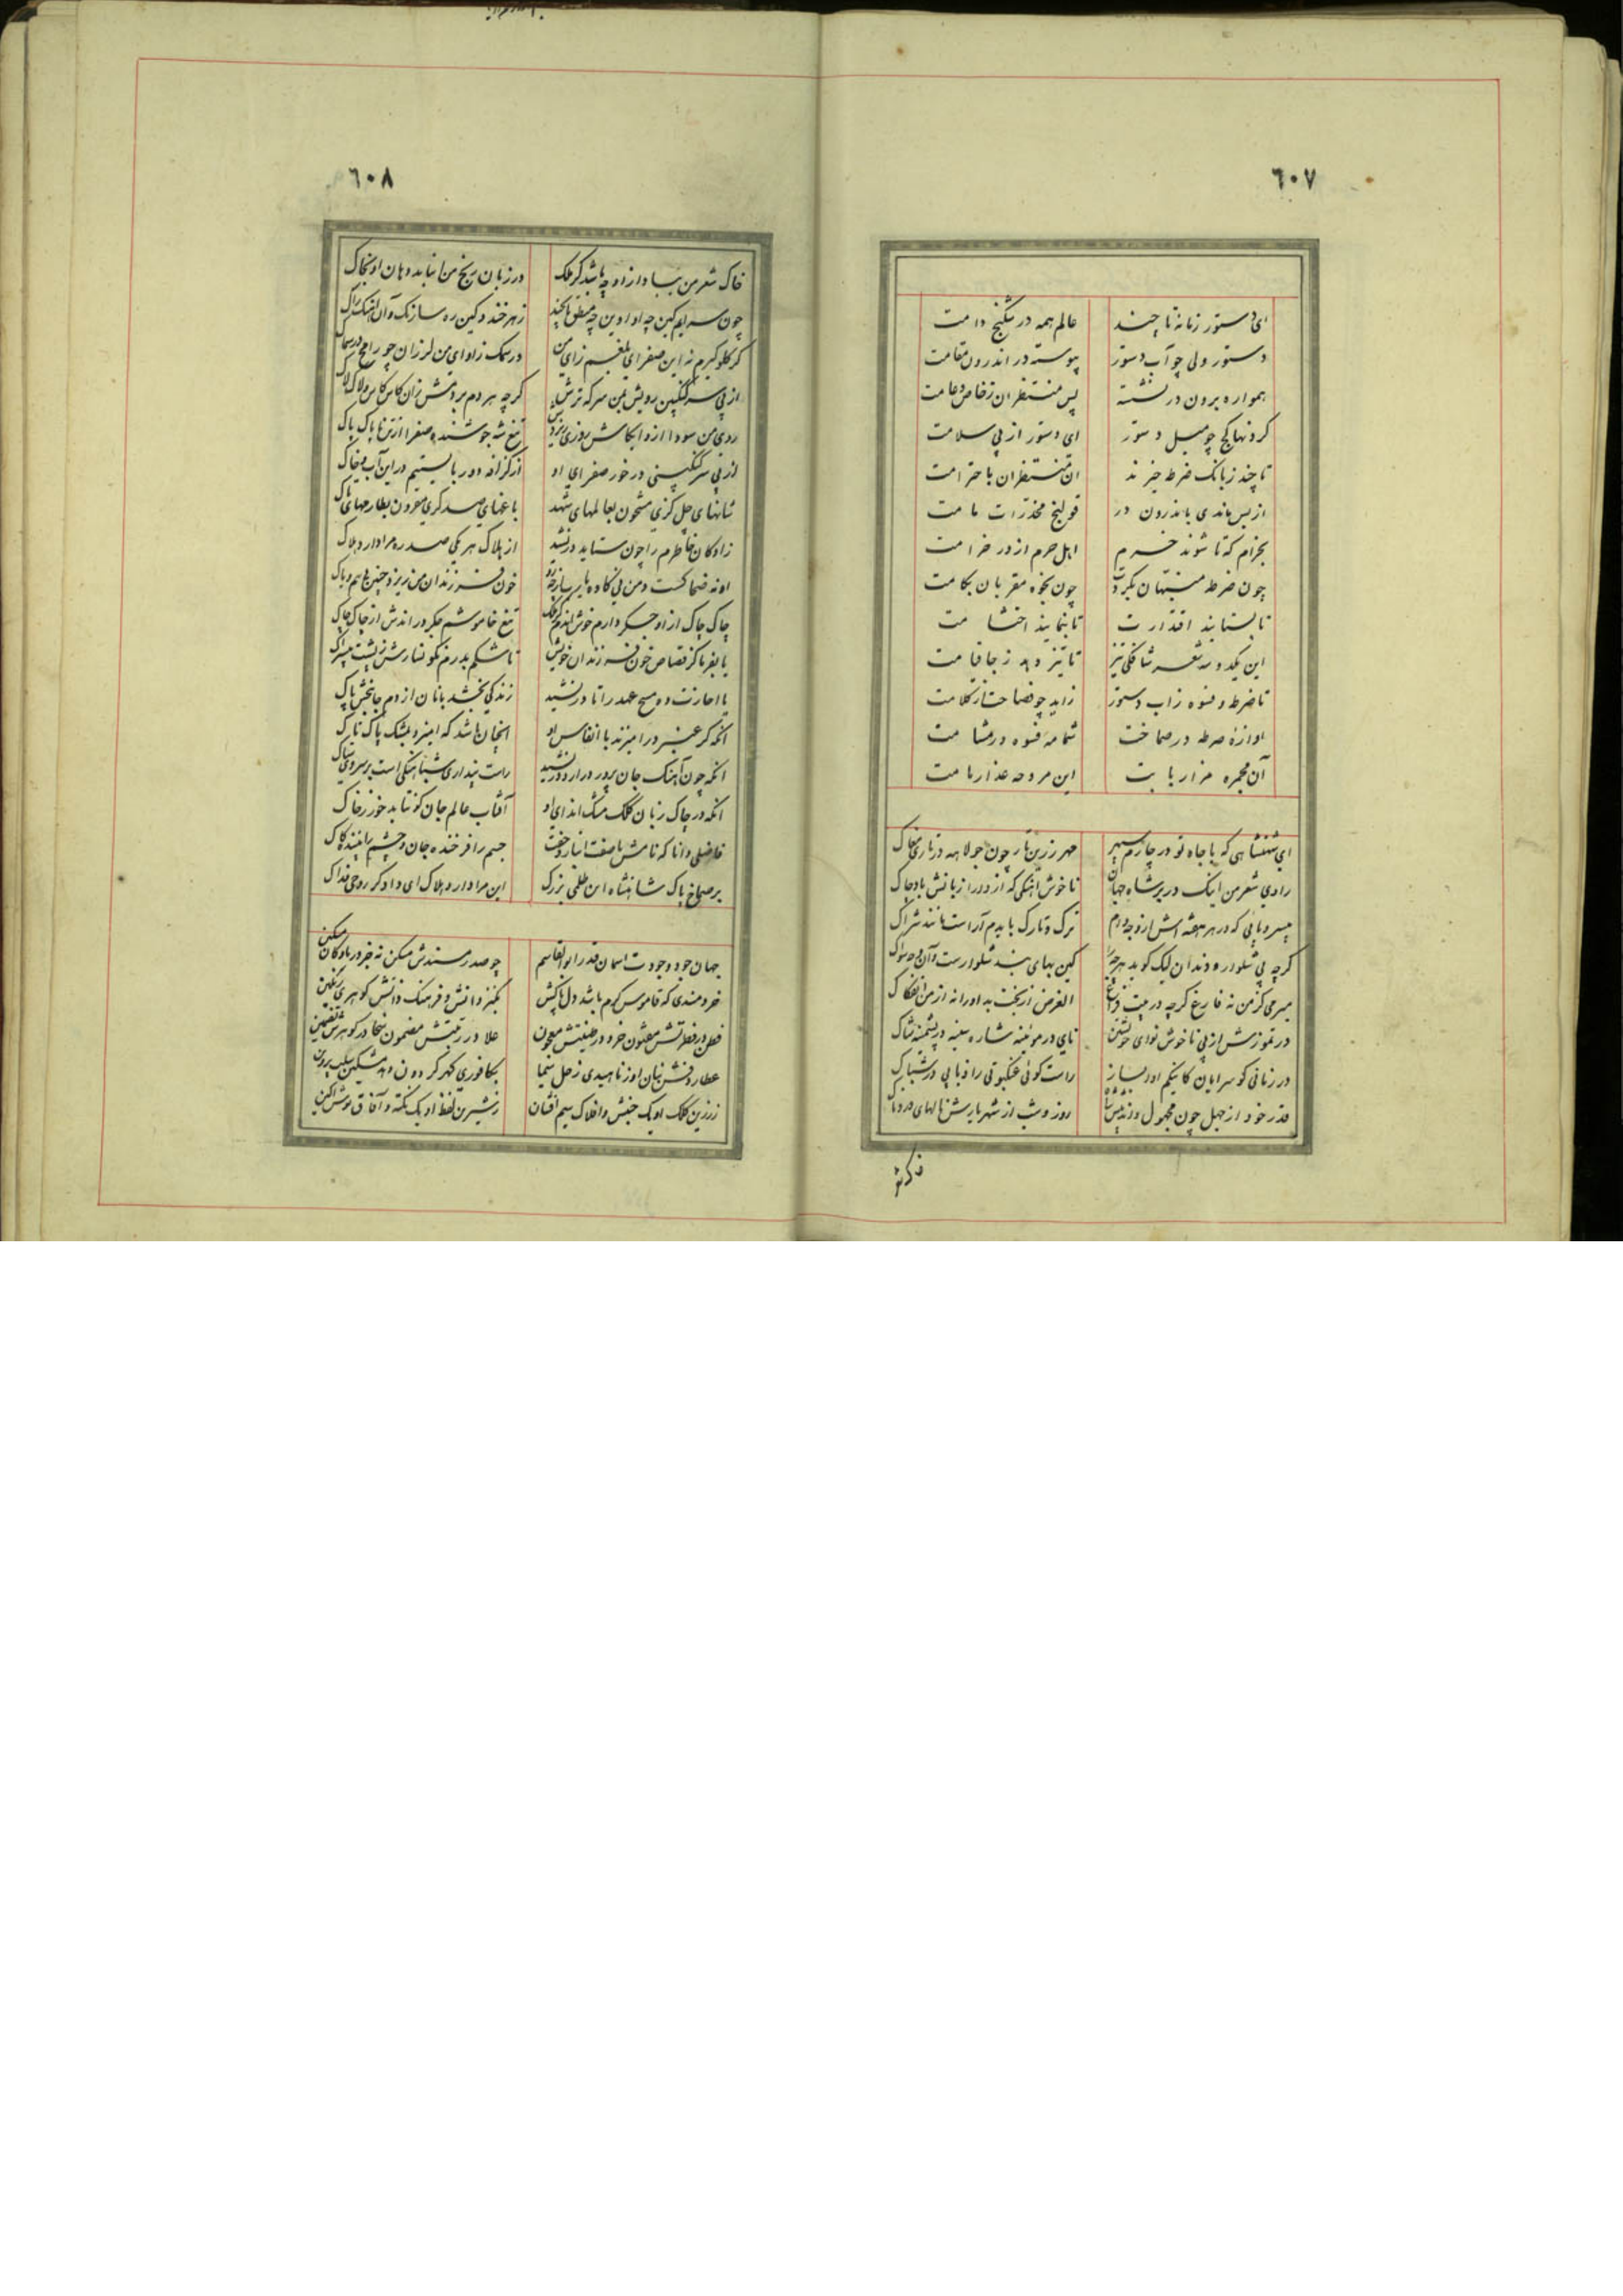 ٦٠٧
ای دستور زمانه تا چند عالم همه در شکنج دامت
دستور ولی چو آب دستور پیوسته در اندرون مقامت
همواره برون در نشسته پس منتظران ز خاص و عامت
کرونها کج چو میل دستور ای دستور از پی سلامت
تا چند ز بانک ضرطه خیزند ان منتظران با حترامت
از بس ماندی باندرون در قولنج مخدرات مامت
بخرام که تا شوند خرم اهل حرم از در خرامت
چون ضرطه منبهان بکردت چون بخوه مقربان بکامت
تا بستایند اقتدارت تا بنمایند احتشامت
این یکدوسه شعر تیز تا تیز دهد ز جا قیامت
تا ضرطه و فسوه زاب دستور زاید چو فصاحت از کلامت
اوازهٔ ضرطه در صماخت شمامه فسوه در مشامت
آن مجمره مزار بابت این مروحه عذار مامت
ای شهنشاهی که با جاه تو در چارم سپهر مهر زرین تار چون جولاهه در تاری مغاک
راوی شعر من اینک در بر شاه جهان ناخوش اهنکی که از در را زبانش باد چاک
بیسر و پایی که در هر هفته اش از وجه وام ترک و تارک بایدم آراست مانند شراک
کرچه بی شلوار و دندان لیک کوید هرچه کین بهای بند شلوارست و آن وجه سواک
میرمی کز من نه فارغ کرچه در بیت فراغ الغرض از بخت بد اورا نه از من انفکاک
در تموزش از پی ناخوش نوای خویشتن نای در موئینه شاره سینه در پشمینه شاک
در زمانی کو سرایان کاینکم اورنساز راست کوئی عنکبوتی را ذبابی در شباک
قدر خود از جهل چون مجهول روز و شب از شهریارش نالهای دردناک
٦٠٨
خاک شعر من بباد از او چه باشد کر فلک در زبان رنج من انباید دهان او بخاک
چون سرایم کین چه او او این چه منطق زهر خندد کین ره سازنک و آن اهنک راک
کر کلو کیرم نه این صفرای بلغم زای من در سمک زاوای من لرزان چو رامح در سماک
از پی سرکنکبین رویش بین سرکه ترش کرچه هر دم
روی من سودا از او اکامش روزی تیغ شه جوشنده صفرا از تن ناپاک پاک
از پی سرکنکبینی در خور صفرای او از کزافه دور بایستیم در این آب و خاک
شانهای چل کزی مشحون بعالمهای شهد باغهای صد کری مقرون بطارمهای تاک
زادکان خاطرم را چون ستاید در نشید از هلاک هر یکی صد ره مرا دارد هلاک
او نه ضحاکست و من نی کاوه یا رب از چه رو خون فرزندان من ریزد چنین بی هم و باک
چاک چاک از او جکر دارم خوش اندم کز فلک تیغ خاموشم جکر در اندش از چاک چاک
یا بفرما کز قصاص خون فرزندان خویش تا شکم بدرم نکونسارش ز پشت
یا اجازت ده مسیح عهد را تا در نشید زندکی بخشد بانان از دم جانبخش پاک
انکه کر عنبر در امیزند با انفاس او انچنان باشد که امیزد بمشک پاک ناک
انکه چون آهنک جان پرور در ارد در نشید راست پنداری شباهنکی است بر سروی
انکه در چاک زبان کلک مشک اندای او آفتاب عالم جان کو نتابد خور ز خاک
فاضلی دانا که نامش با صفت انباز و جفت جسم را فرخنده جان و چشم را
بر صماخ پاک شاهنشاه این ظلمی بزرک این مرا دارد هلاک ای دادکر روحی فداک
جهان جود وجودت اسمان قدر ابو القاسم چو صدر مسندش مسکن نه جز در یادکان مسکین
خردمندی که قاموس کرم باشد دل پاکش بکنز دانش و فرهنک ذاتش کوهری رنکین
فطن در فطرتش مفتون خرد در طینتش معجون علا در رتبتش مضمون سخا در کوهرش تضمین
عطارد فش بنان او ز ناهیدی زحل سیما بکافوری کهر کردون دهد مشکین سلب پروین
ز زرین کلک او یک جنبش و افلاک سیم افشان ز شیرین لفظ او یک نکته و آفاق نوش اکین